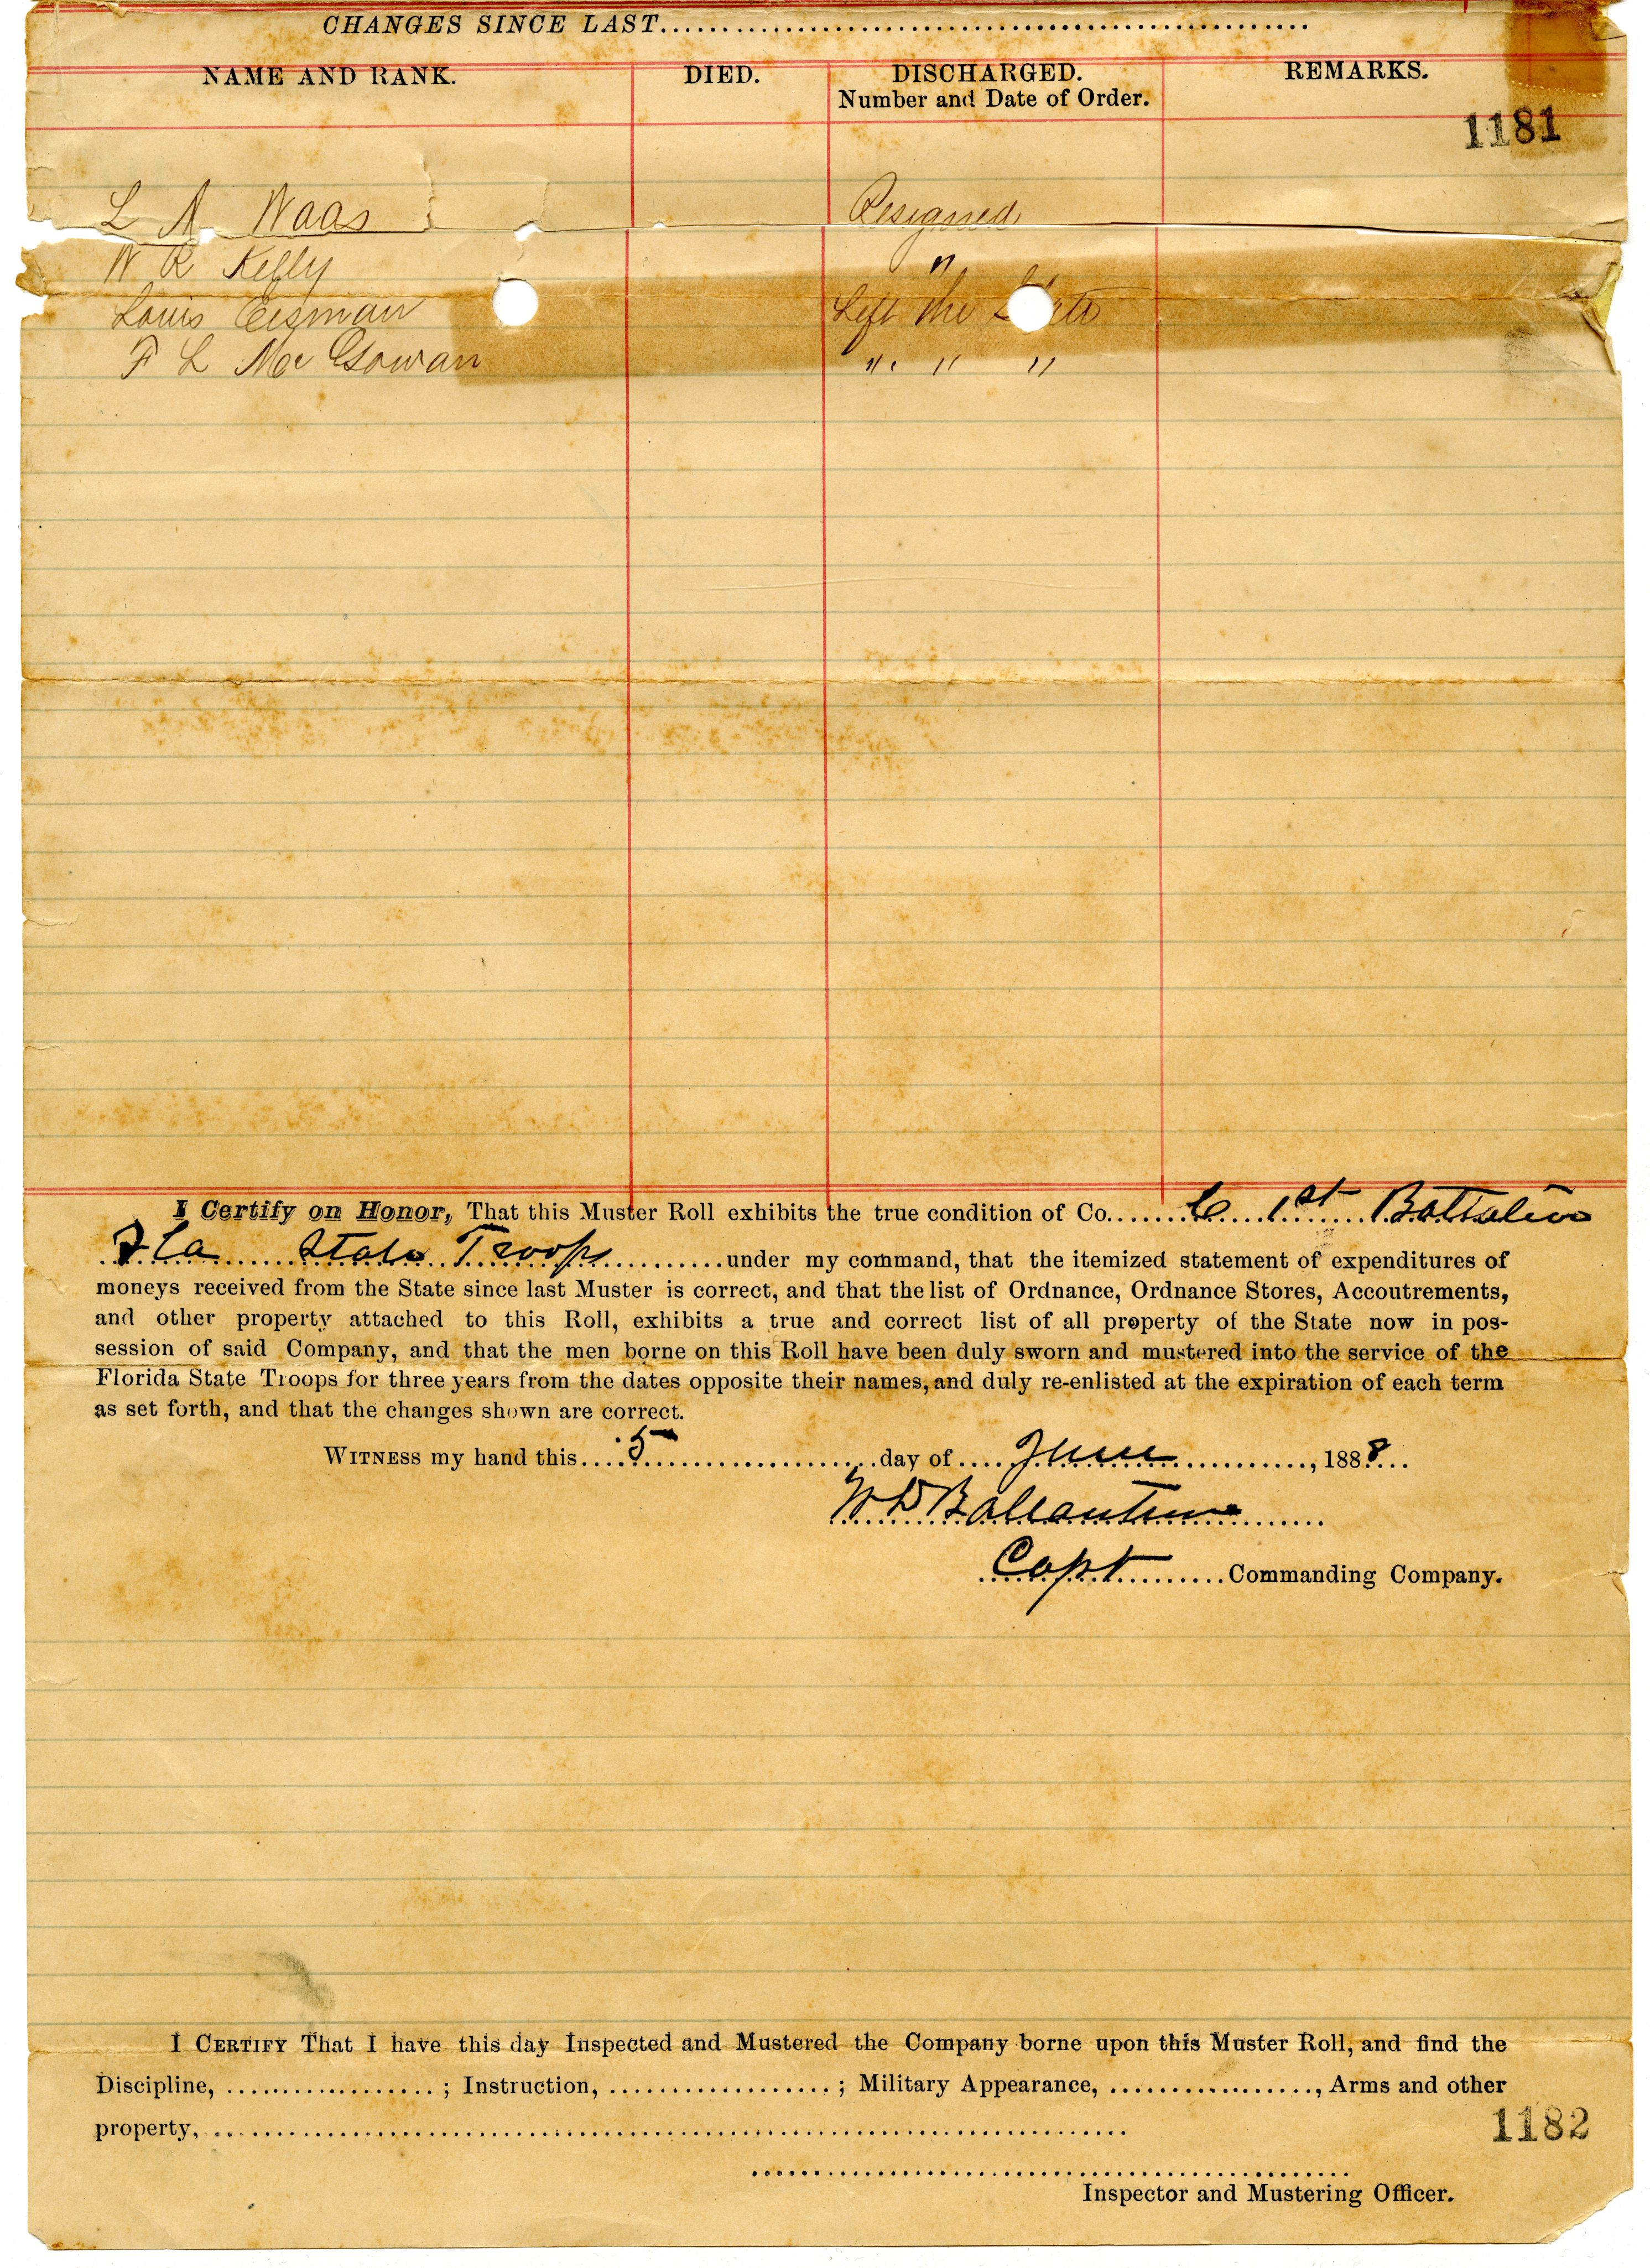 CHANGES SINCE LAST
NAME AND RANK. DIED. DISCHARGED. REMARKS.
Number and Date of Order.
1181
L A Waas Resigned
W R Kelly "
Louis Eisman Left the State
F L McGowan " " "
I Certify on Honor, That this Muster Roll exhibits the true condition of Co. C 1st Battalion
Fla State Troops under my command, that the itemized statement of expenditures of
moneys received from the State since last Muster is correct, and that the list of Ordnance, Ordnance Stores, Accoutrements,
and other property attached to this Roll, exhibits a true and correct list of all property of the State now in pos-
session of said Company, and that the men borne on this Roll have been duly sworn and mustered into the service of the
Florida State Troops for three years from the dates opposite their names, and duly re-enlisted at the expiration of each term
as set forth, and that the changes shown are correct.
WITNESS my hand this 5 day of June, 1888
W D Ballantine
Capt Commanding Company.
I CERTIFY That I have this day Inspected and Mustered the Company borne upon this Muster Roll, and find the
Discipline, ; Instruction, ; Military Appearance, , Arms and other
property,
1182
Inspector and Mustering Officer.